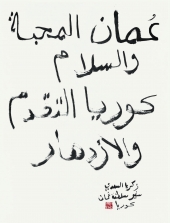 عُمان المحبة
والسلام
كوريا التقدم
والازدهار
زكريا السعدي
سفير سلطنة عمان
كوريا